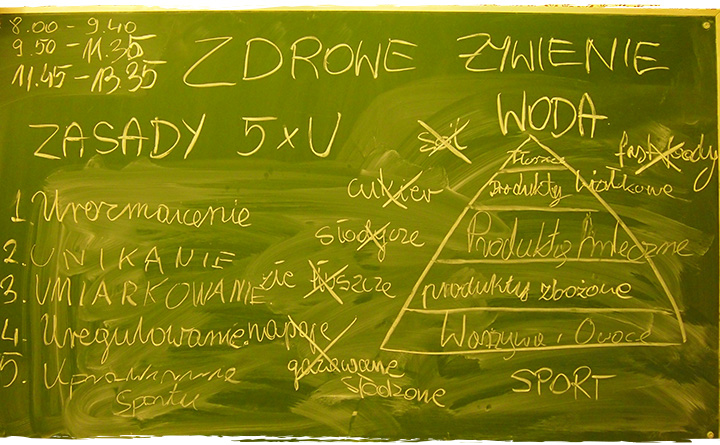 8.00 - 9.40
9.50 - 11.35
11.45 - 13.35
ZDROWE ŻYWIENIE
ZASADY 5xU
1. Urozmaicenie
2. UNIKANIE
3. UMIARKOWANIE
4. Uregulowanie
5. Uprawianie
Sportu
sól
cukier
słodycze
źle tłuszcze
napoje
gazowane
słodzone
fast foody
WODA
tłuszcze
Produkty białkowe
Produkty mleczne
produkty zbożowe
Warzywa i Owoce
SPORT